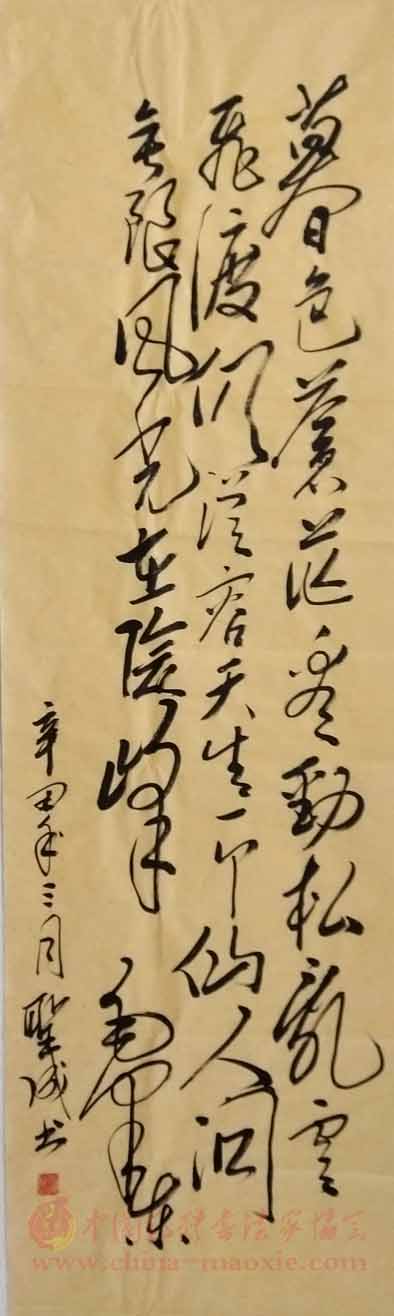 暮色蒼茫看勁松亂雲
飛渡仍從容天生一个仙人洞
無限風光在險峰 毛澤東
辛丑年三月 书
中国毛体书法家协会
www.china-maoxie.com